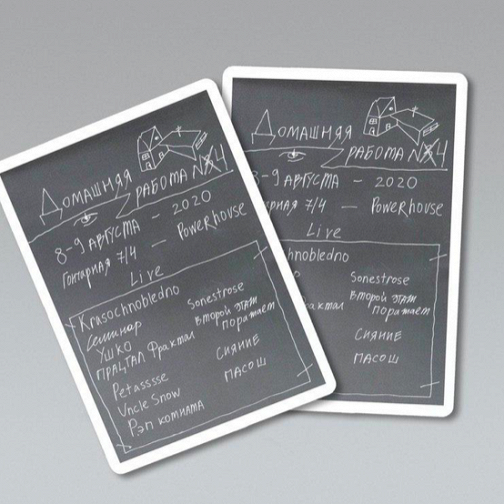 Домашняя
работа №4
8-9 августа - 2020
Гончарная 7/4 — Powerhouse
Live
Krasochnobledno
Семинар
УШКО
ПРАЦТАЛ Фрактал
Petasssse
Uncle Snow
Рэп комната
Sonestrose
Второй этаж
поражает
СИЯНИЕ
ПАСОШ
Домашняя
работа №4
8-9 августа - 2020
7/4 — Powerhouse
Live
chnobledno
Sonestrose
Второй этаж
поражает
СИЯНИЕ
ПАСОШ